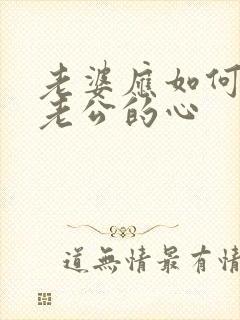 老婆应如何
老公的心
道無情最有情